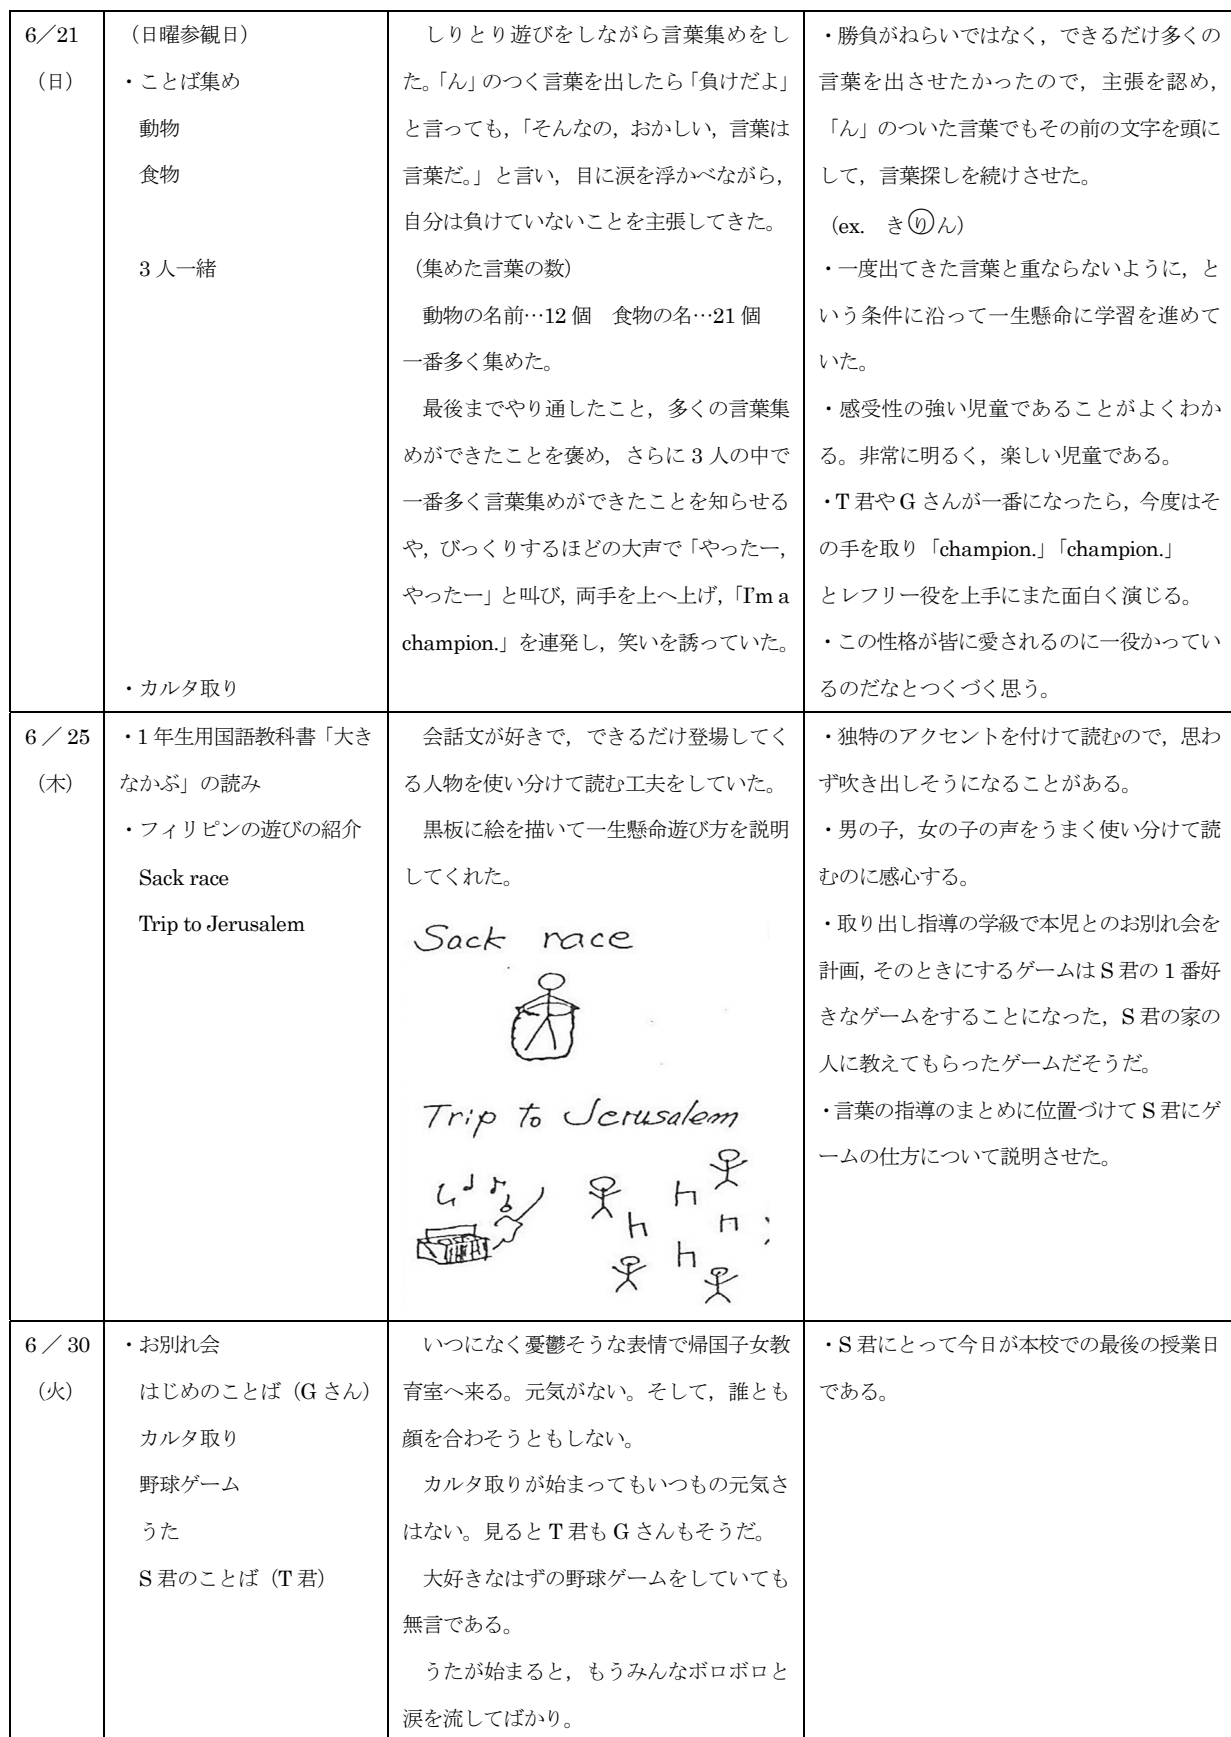 6／21
（日）
（日曜参観日）
・ことば集め
動物
食物
3 人一緒
・カルタ取り
しりとり遊びをしながら言葉集めをし
た。「ん」のつく言葉を出したら「負けだよ」
と言っても，「そんなの，おかしい，言葉は
言葉だ。」と言い，目に涙を浮かべながら，
自分は負けていないことを主張してきた。
（集めた言葉の数）
動物の名前…12 個　食物の名…21 個
一番多く集めた。
最後までやり通したこと，多くの言葉集
めができたことを褒め，さらに 3 人の中で
一番多く言葉集めができたことを知らせる
や，びっくりするほどの大声で「やったー，
やったー」と叫び，両手を上へ上げ，「I'm a
champion.」を連発し，笑いを誘っていた。
・勝負がねらいではなく，できるだけ多くの
言葉を出させたかったので，主張を認め，
「ん」のついた言葉でもその前の文字を頭に
して，言葉探しを続けさせた。
（ex.　きりん）
・一度出てきた言葉と重ならないように，と
いう条件に沿って一生懸命に学習を進めて
いた。
・感受性の強い児童であることがよくわか
る。非常に明るく，楽しい児童である。
・T 君や G さんが一番になったら，今度はそ
の手を取り「champion.」「champion.」
とレフリー役を上手にまた面白く演じる。
・この性格が皆に愛されるのに一役かってい
るのだなとつくづく思う。
6／25
（木）
・1 年生用国語教科書「大き
なかぶ」の読み
・フィリピンの遊びの紹介
Sack race
Trip to Jerusalem
会話文が好きで，できるだけ登場してく
る人物を使い分けて読む工夫をしていた。
黒板に絵を描いて一生懸命遊び方を説明
してくれた。
Sack race
Trip to Jerusalem
・独特のアクセントを付けて読むので，思わ
ず吹き出しそうになることがある。
・男の子，女の子の声をうまく使い分けて読
むのに感心する。
・取り出し指導の学級で本児とのお別れ会を
計画，そのときにするゲームは S 君の 1 番好
きなゲームをすることになった，S 君の家の
人に教えてもらったゲームだそうだ。
・言葉の指導のまとめに位置づけて S 君にゲ
ームの仕方について説明させた。
6／30
（火）
・お別れ会
はじめのことば（G さん）
カルタ取り
野球ゲーム
うた
S 君のことば（T 君）
いつになく憂鬱そうな表情で帰国子女教
育室へ来る。元気がない。そして，誰とも
顔を合わそうともしない。
カルタ取りが始まってもいつもの元気さ
はない。見ると T 君も G さんもそうだ。
大好きなはずの野球ゲームをしていても
無言である。
うたが始まると，もうみんなボロボロと
涙を流してばかり。
・S 君にとって今日が本校での最後の授業日
である。